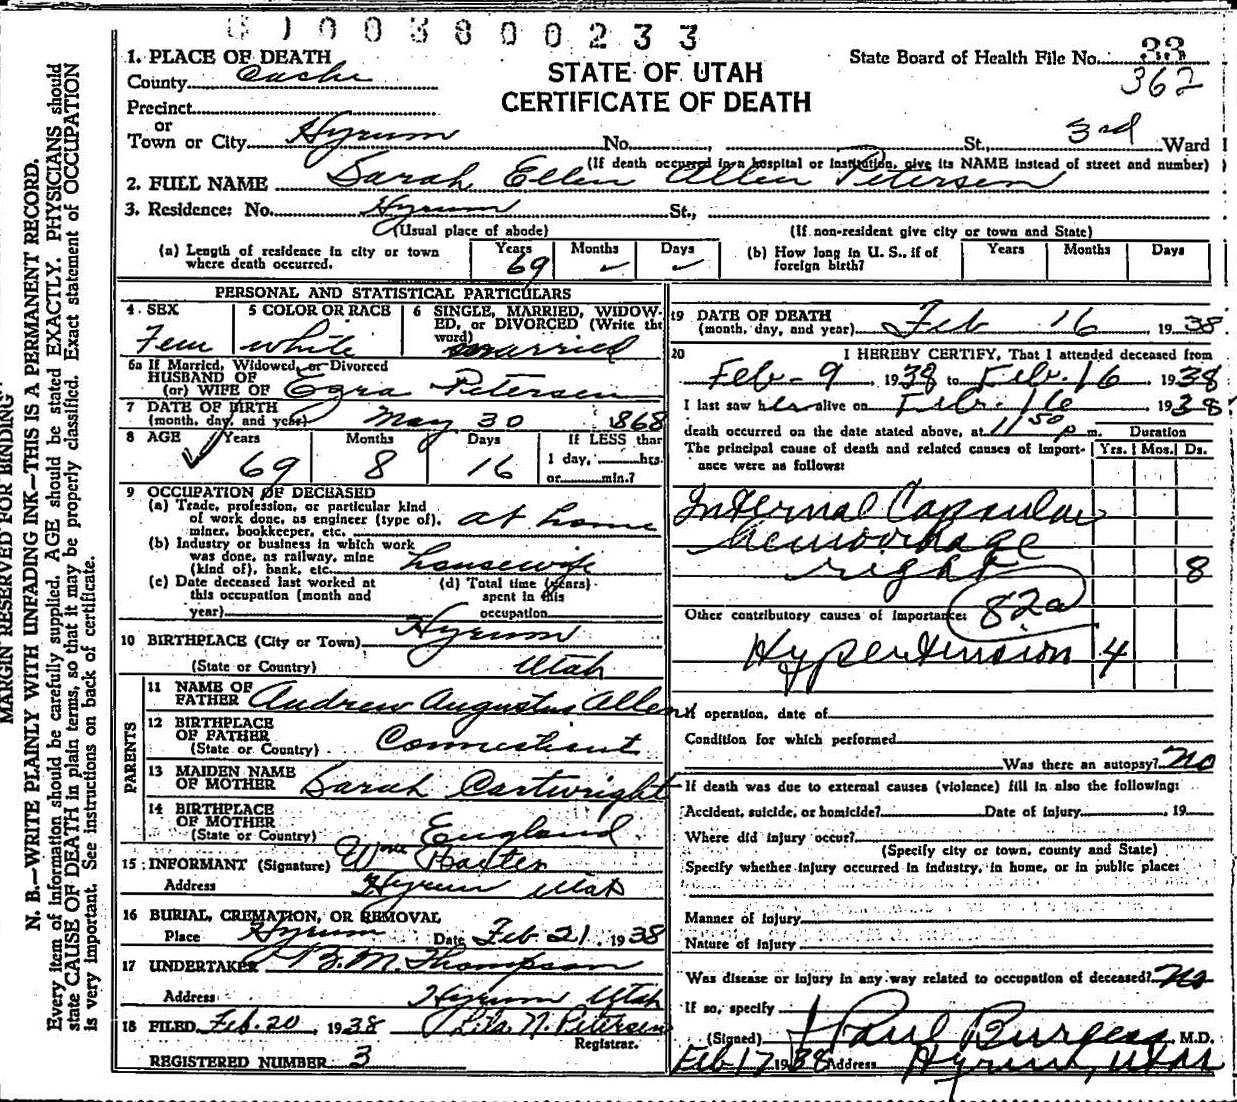 0 1 0 0 3 8 0 0 2 3 3
1. PLACE OF DEATH
County Cache
Precinct
or
Town or City Hyrum No. St., 3rd Ward
STATE OF UTAH
CERTIFICATE OF DEATH
State Board of Health File No. 33
362
(If death occurred in a hospital or institution, give its NAME instead of street and number)
2. FULL NAME Sarah Ellen Allen Petersen
3. Residence: No. Hyrum St.,
(Usual place of abode) (If non-resident give city or town and State)
(a) Length of residence in city or town where death occurred. Years 69 Months ✓ Days ✓
(b) How long in U. S., if of foreign birth? Years Months Days
PERSONAL AND STATISTICAL PARTICULARS
4 SEX Fem
5 COLOR OR RACE white
6 SINGLE, MARRIED, WIDOWED, or DIVORCED (Write the word) married
6a If Married, Widowed, or Divorced
HUSBAND OF
(or) WIFE OF Ezra Petersen
7 DATE OF BIRTH
(month, day, and year) May 30 1868
8 AGE ✓ Years 69 Months 8 Days 16 If LESS than 1 day, hrs. or min.?
9 OCCUPATION OF DECEASED
(a) Trade, profession, or particular kind
of work done, as engineer (type of),
miner, bookkeeper, etc. at home
(b) Industry or business in which work
was done, as railway, mine
(kind of), bank, etc. housewife
(c) Date deceased last worked at
this occupation (month and
year)
(d) Total time (years)
spent in this
occupation
10 BIRTHPLACE (City or Town) Hyrum
(State or Country) Utah
PARENTS
11 NAME OF
FATHER Andrew Augustus Allen
12 BIRTHPLACE
OF FATHER
(State or Country) Connecticut
13 MAIDEN NAME
OF MOTHER Sarah Cartwright
14 BIRTHPLACE
OF MOTHER
(State or Country) England
15 INFORMANT (Signature) Wm
Address Hyrum Utah
16 BURIAL, CREMATION, OR REMOVAL
Place Hyrum Date Feb 21, 1938
17 UNDERTAKER B. M. Thompson
Address Hyrum Utah
18 FILED Feb. 20, 1938 Lila N. Petersen
Registrar.
REGISTERED NUMBER 3
19 DATE OF DEATH
(month, day, and year) Feb 16 1938
20 I HEREBY CERTIFY, That I attended deceased from
Feb - 9, 1938 to Feb. 16, 1938
I last saw her alive on Feb. 16 1938
death occurred on the date stated above, at 11 50 p m.
The principal cause of death and related causes of importance were as follows:
Duration
Yrs. Mos. Ds.
Internal Capsular
hemorrhage
right 8
82a
Other contributory causes of importance:
Hypertension 4
If operation, date of
Condition for which performed
Was there an autopsy? No
If death was due to external causes (violence) fill in also the following:
Accident, suicide, or homicide? Date of injury , 19
Where did injury occur?
(Specify city or town, county and State)
Specify whether injury occurred in industry, in home, or in public place:
Manner of injury
Nature of injury
Was disease or injury in any way related to occupation of deceased? No
If so, specify
(Signed) Paul Burgess, M.D.
Feb 17 1938 Address Hyrum, Utah
MARGIN RESERVED FOR BINDING
N. B.—WRITE PLAINLY WITH UNFADING INK—THIS IS A PERMANENT RECORD.
Every item of information should be carefully supplied. AGE should be stated EXACTLY. PHYSICIANS should
state CAUSE OF DEATH in plain terms, so that it may be properly classified. Exact statement of OCCUPATION
is very important. See instructions on back of certificate.